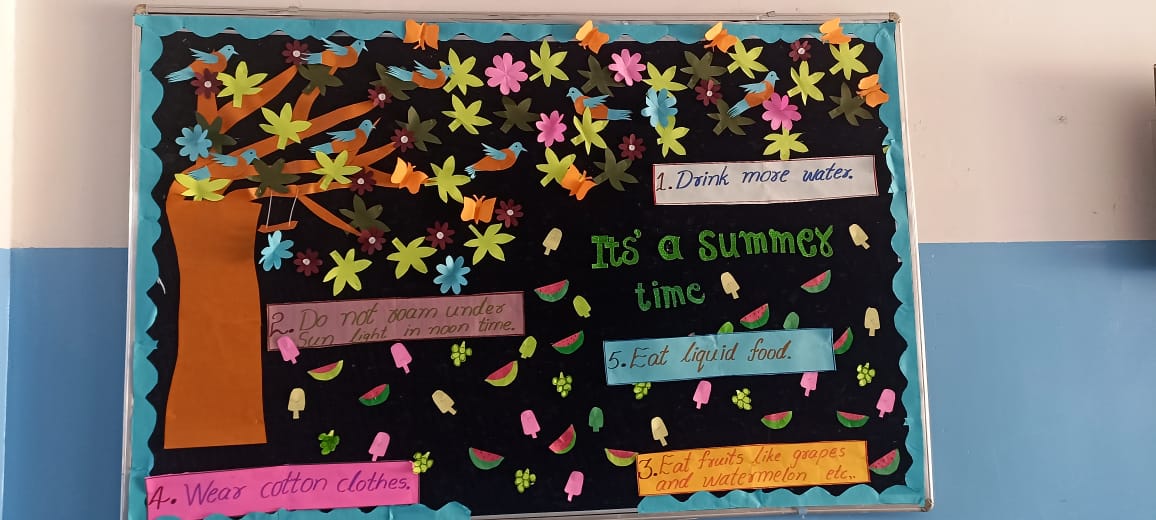 1. Drink more water.
Its' a summer
time
2. Do not roam under
Sun light in noon time.
5. Eat liquid food.
3. Eat fruits like grapes
and watermelon etc..
4. Wear cotton clothes.